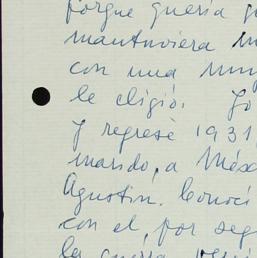 porque quería
mantuviera
con una
le eligió. Yo
Y regresé 1931,
marido, a Méx
Agustín. Conocí
con el, por seg
la guerra